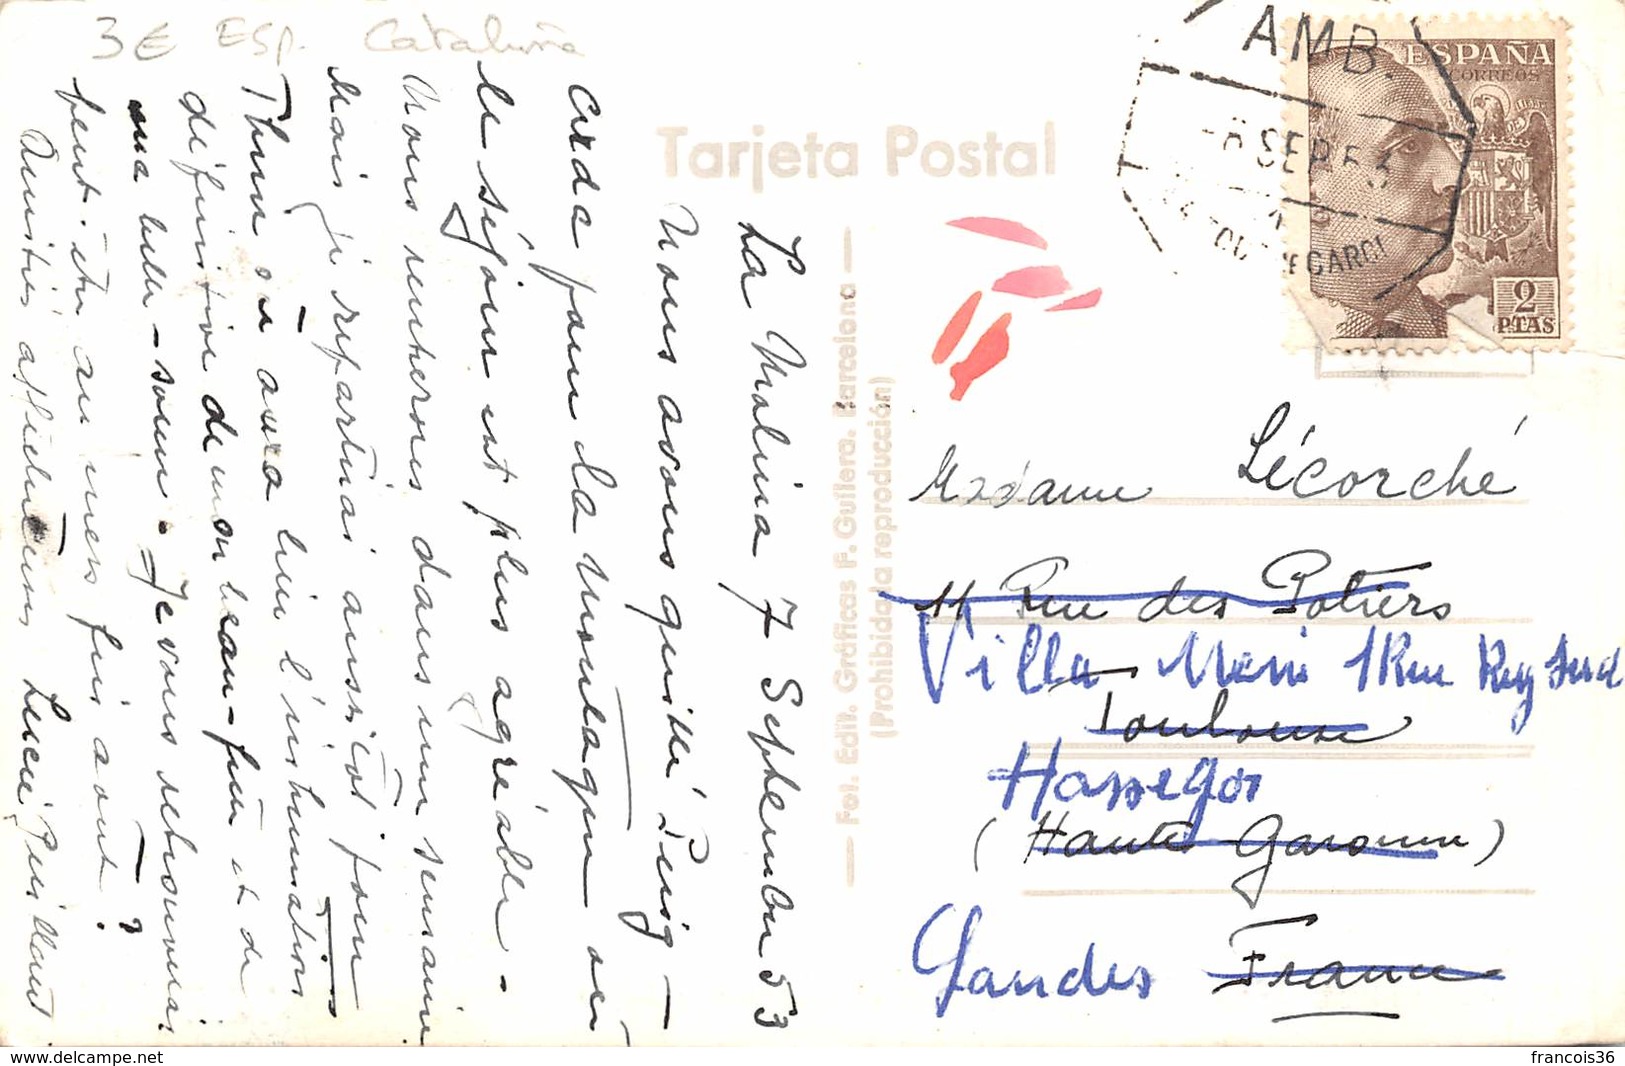 3€ ESP. Cataluña
Tarjeta Postal
AMB.
SEP 53
ESPAÑA
CORREOS
2
PTAS
Fot. Edit. Gráficas F. Guilera. Barcelona
(Prohibida la reproducción)
La Molina 7 Septembre 53
Nous avons quitté Puig-
cerda pour la montagne où
le séjour est plus agréable.
Nous rentrerons dans une semaine
mais je repartirai aussitôt pour
Thun où aura lieu l'inhumation
définitive de mon beau-frère et de
ma belle-sœur. Je vous retrouverai
peut-être au mas fin août ?
Amitiés affectueuses Lucie
Madame Lécorché
11 Rue des Potiers
Villa 1 Rue
Toulouse
Hossegor
(Haute Garonne)
Landes France
delcampe.net
francois36